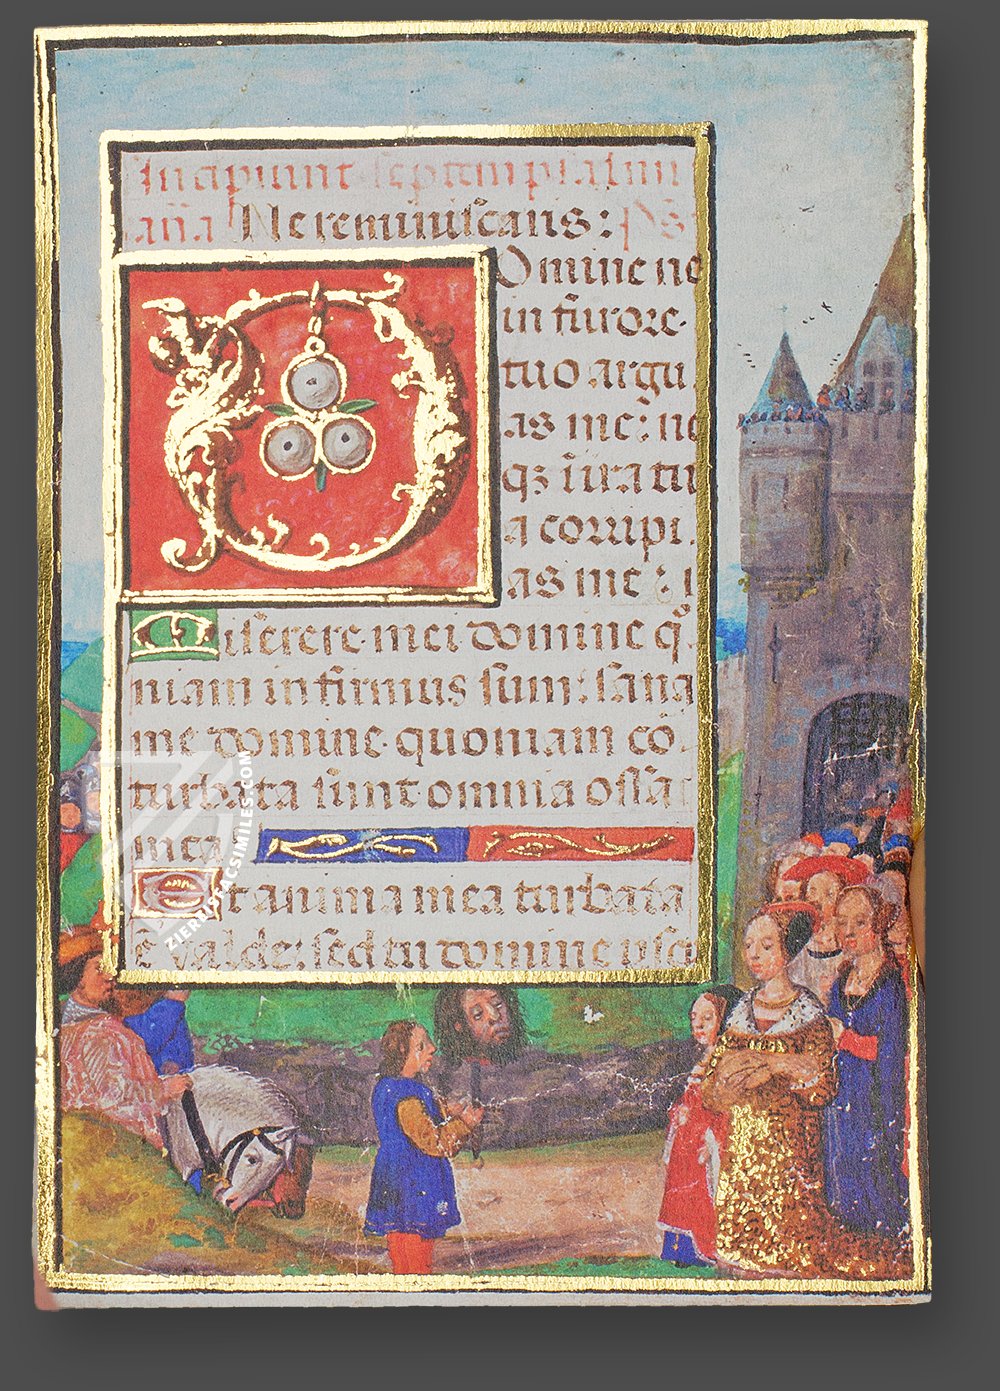 Incipiunt septem psalmi
Ne reminiscaris: ps
Domine ne
in furore
tuo argu
as me: ne
qꝫ in ira tu
a corripi
as me:
Miserere mei domine qͦ
niam infirmus sum: sana
me domine quoniam cō
turbata sunt omnia ossa
mea
Et anima mea turbata
ē valde: sed tu domine usq
ZIEREISFACSIMILES.COM